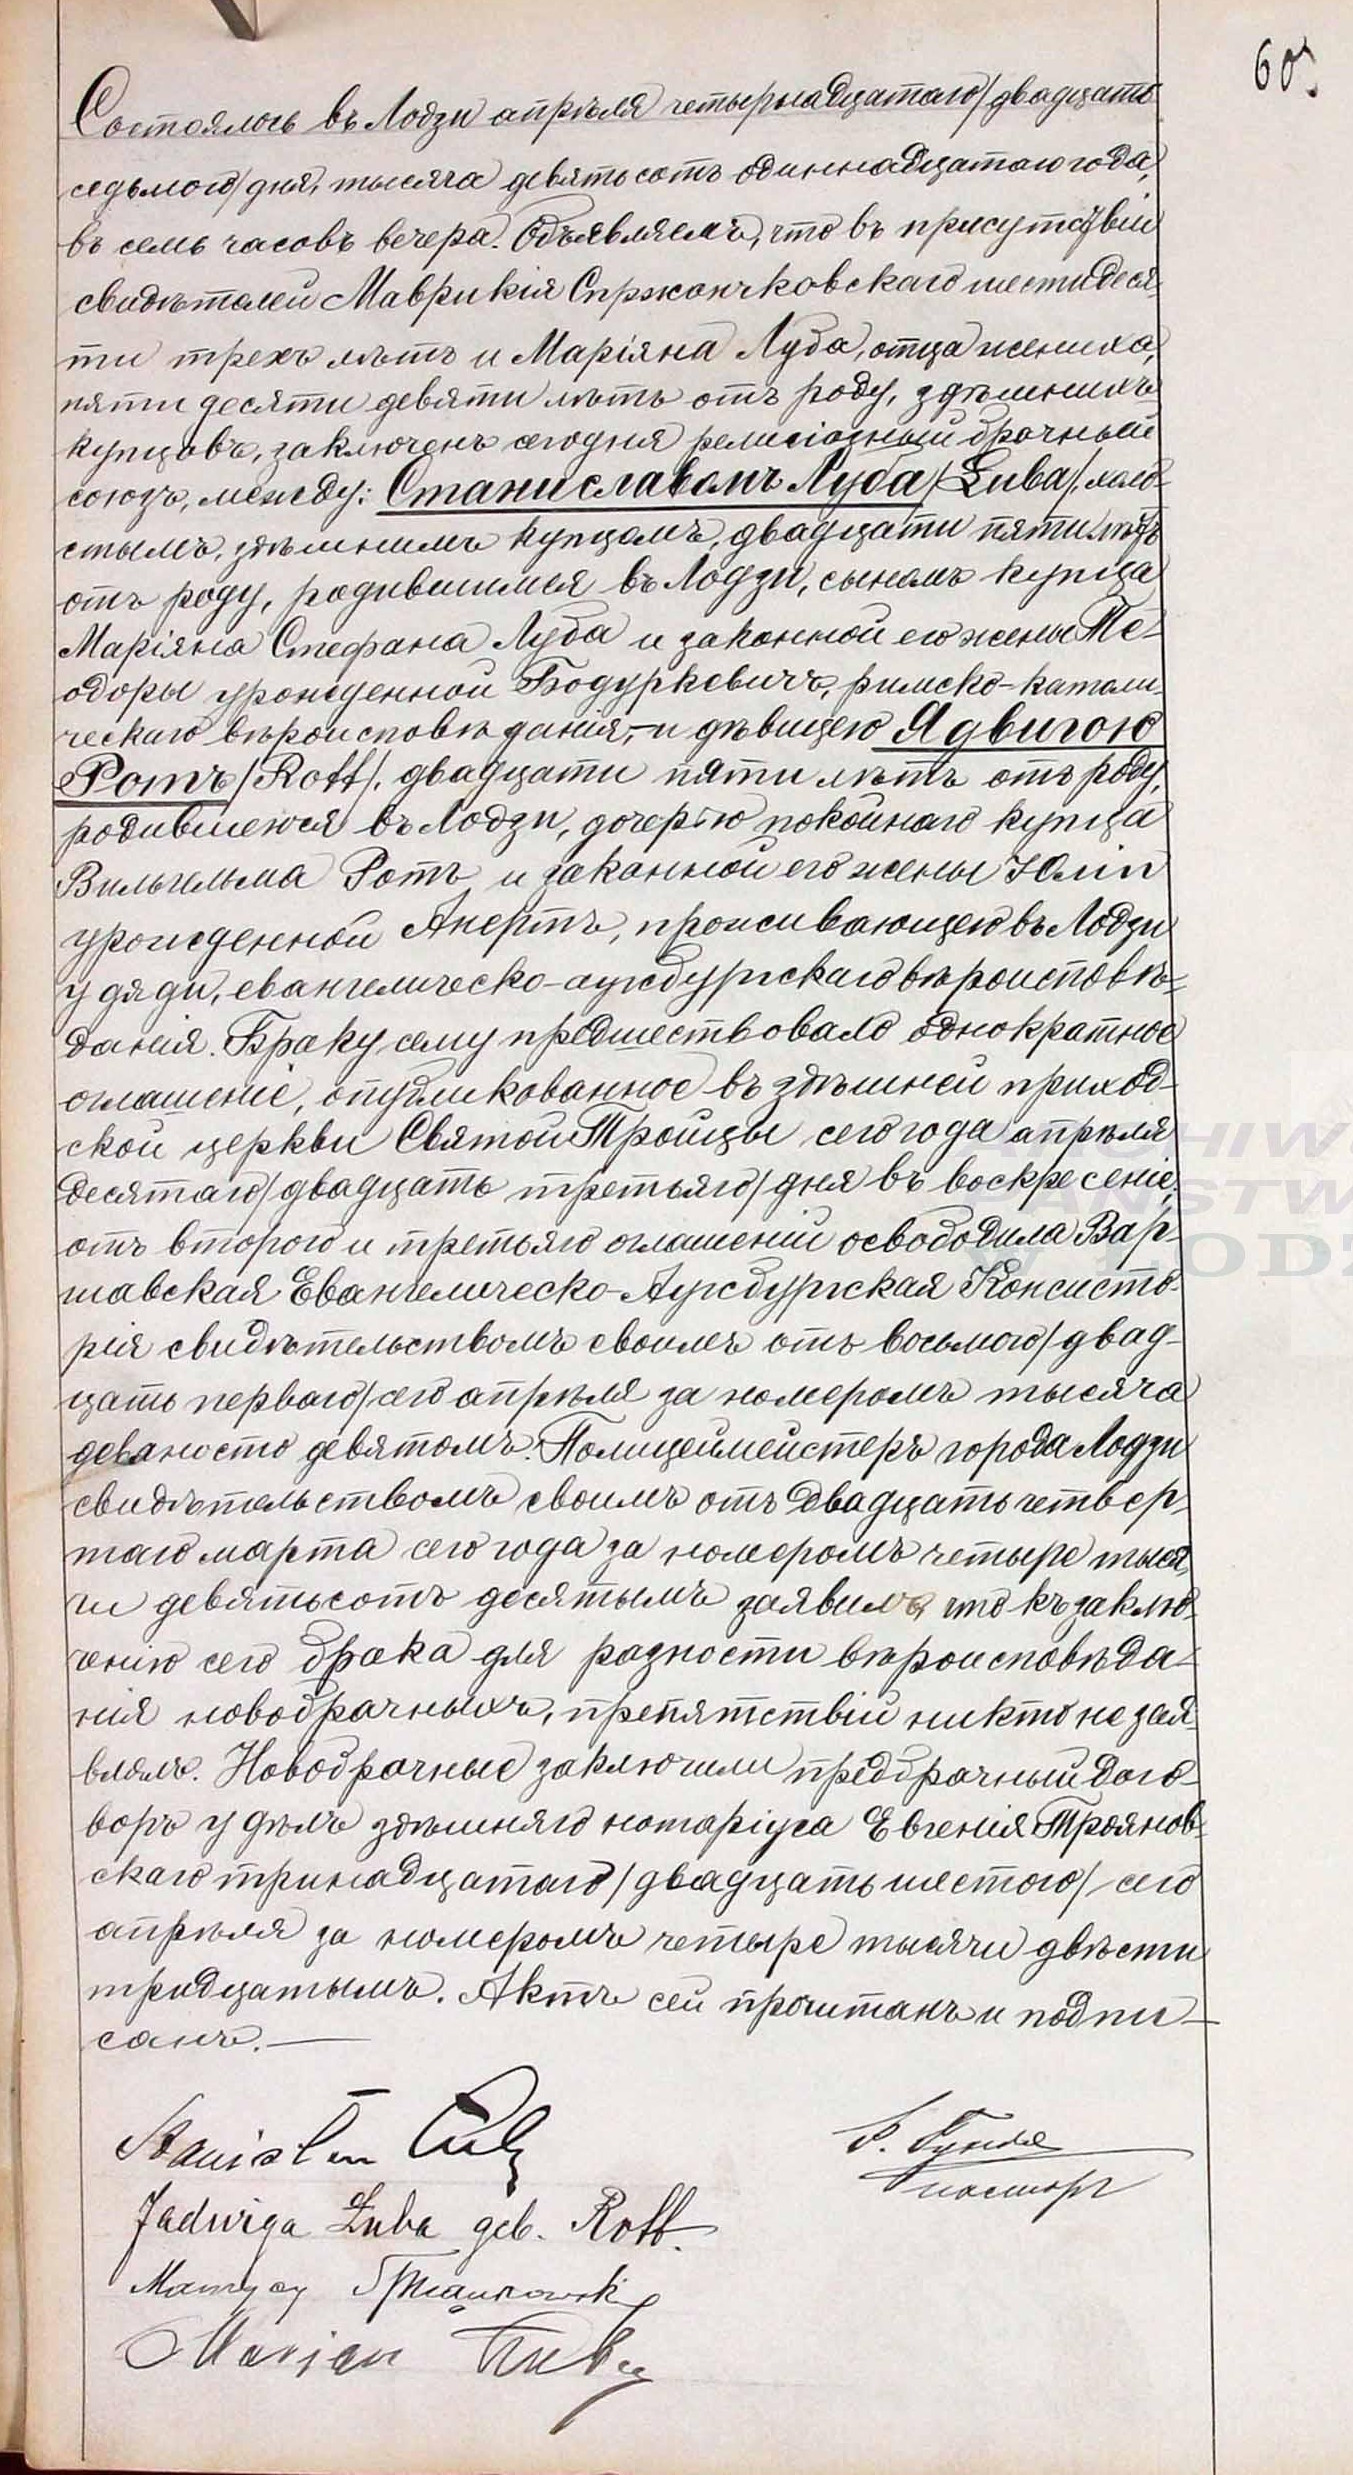 60
Состоялось въ Лодзи апрѣля четырнадцатаго/двадцать
седьмого/дня, тысяча девятьсотъ одиннадцатаго года,
въ семь часовъ вечера. Объявляемъ, что въ присутствіи
свидѣтелей Маврикія Спржончковскаго шестидеся-
ти трехъ лѣтъ и Маріяна Луба, отца жениха,
пятидесяти девяти лѣтъ отъ роду, здѣшнихъ
купцовъ, заключенъ сегодня религіозный брачный
союзъ, между: Станиславомъ Луба/Łuba/, холо-
стымъ, здѣшнимъ купцомъ, двадцати пяти лѣтъ
отъ роду, родившимся въ Лодзи, сыномъ купца
Маріяна Стефана Луба и законной его жены Те-
одоры урожденной Бодуркевичъ, римско-католи-
ческаго вѣроисповѣданія,- и дѣвицею Ядвигою
Ротъ/Rott/, двадцати пяти лѣтъ отъ роду,
родившеюся въ Лодзи, дочерью покойнаго купца
Вильгельма Ротъ и законной его жены Юліи
урожденной Анертъ, проживающею въ Лодзи
у дяди, евангелическо-аугсбургскаго вѣроисповѣ-
данія. Браку сему предшествовало однократное
оглашеніе, опубликованное въ здѣшней приход-
ской церкви Святой Тройцы сего года апрѣля
десятаго/двадцать третьяго/дня въ воскресеніе;
отъ второго и третьяго оглашеній освободила Вар-
шавская Евангелическо-Аугсбургская Консисто-
рія свидѣтельствомъ своимъ отъ восьмого/двад-
цать перваго/сего апрѣля за номеромъ тысяча
девяносто девятомъ. Полицеймейстеръ города Лодзи
свидѣтельствомъ своимъ отъ двадцать четвер-
таго марта сего года за номеромъ четыре тыся-
чи девятьсотъ десятымъ заявилъ, что къ заклю-
ченію сего брака для разности вѣроисповѣда-
нія новобрачныхъ, препятствій никто не зая-
влялъ. Новобрачные заключили предбрачный дого-
воръ у дѣлъ здѣшняго нотаріуса Евгенія Трояно­в-
скаго тринадцатаго/двадцать шестого/сего
апрѣля за номеромъ четыре тысячи двѣсти
тридцатымъ. Актъ сей прочитанъ и подпи-
санъ.—
Stanisław Łuba
Р. Гундлах
пасторъ
Jadwiga Łuba geb. Rott.
Marian Łuba
ARCHIWUM
PAŃSTWOWE
W ŁODZI